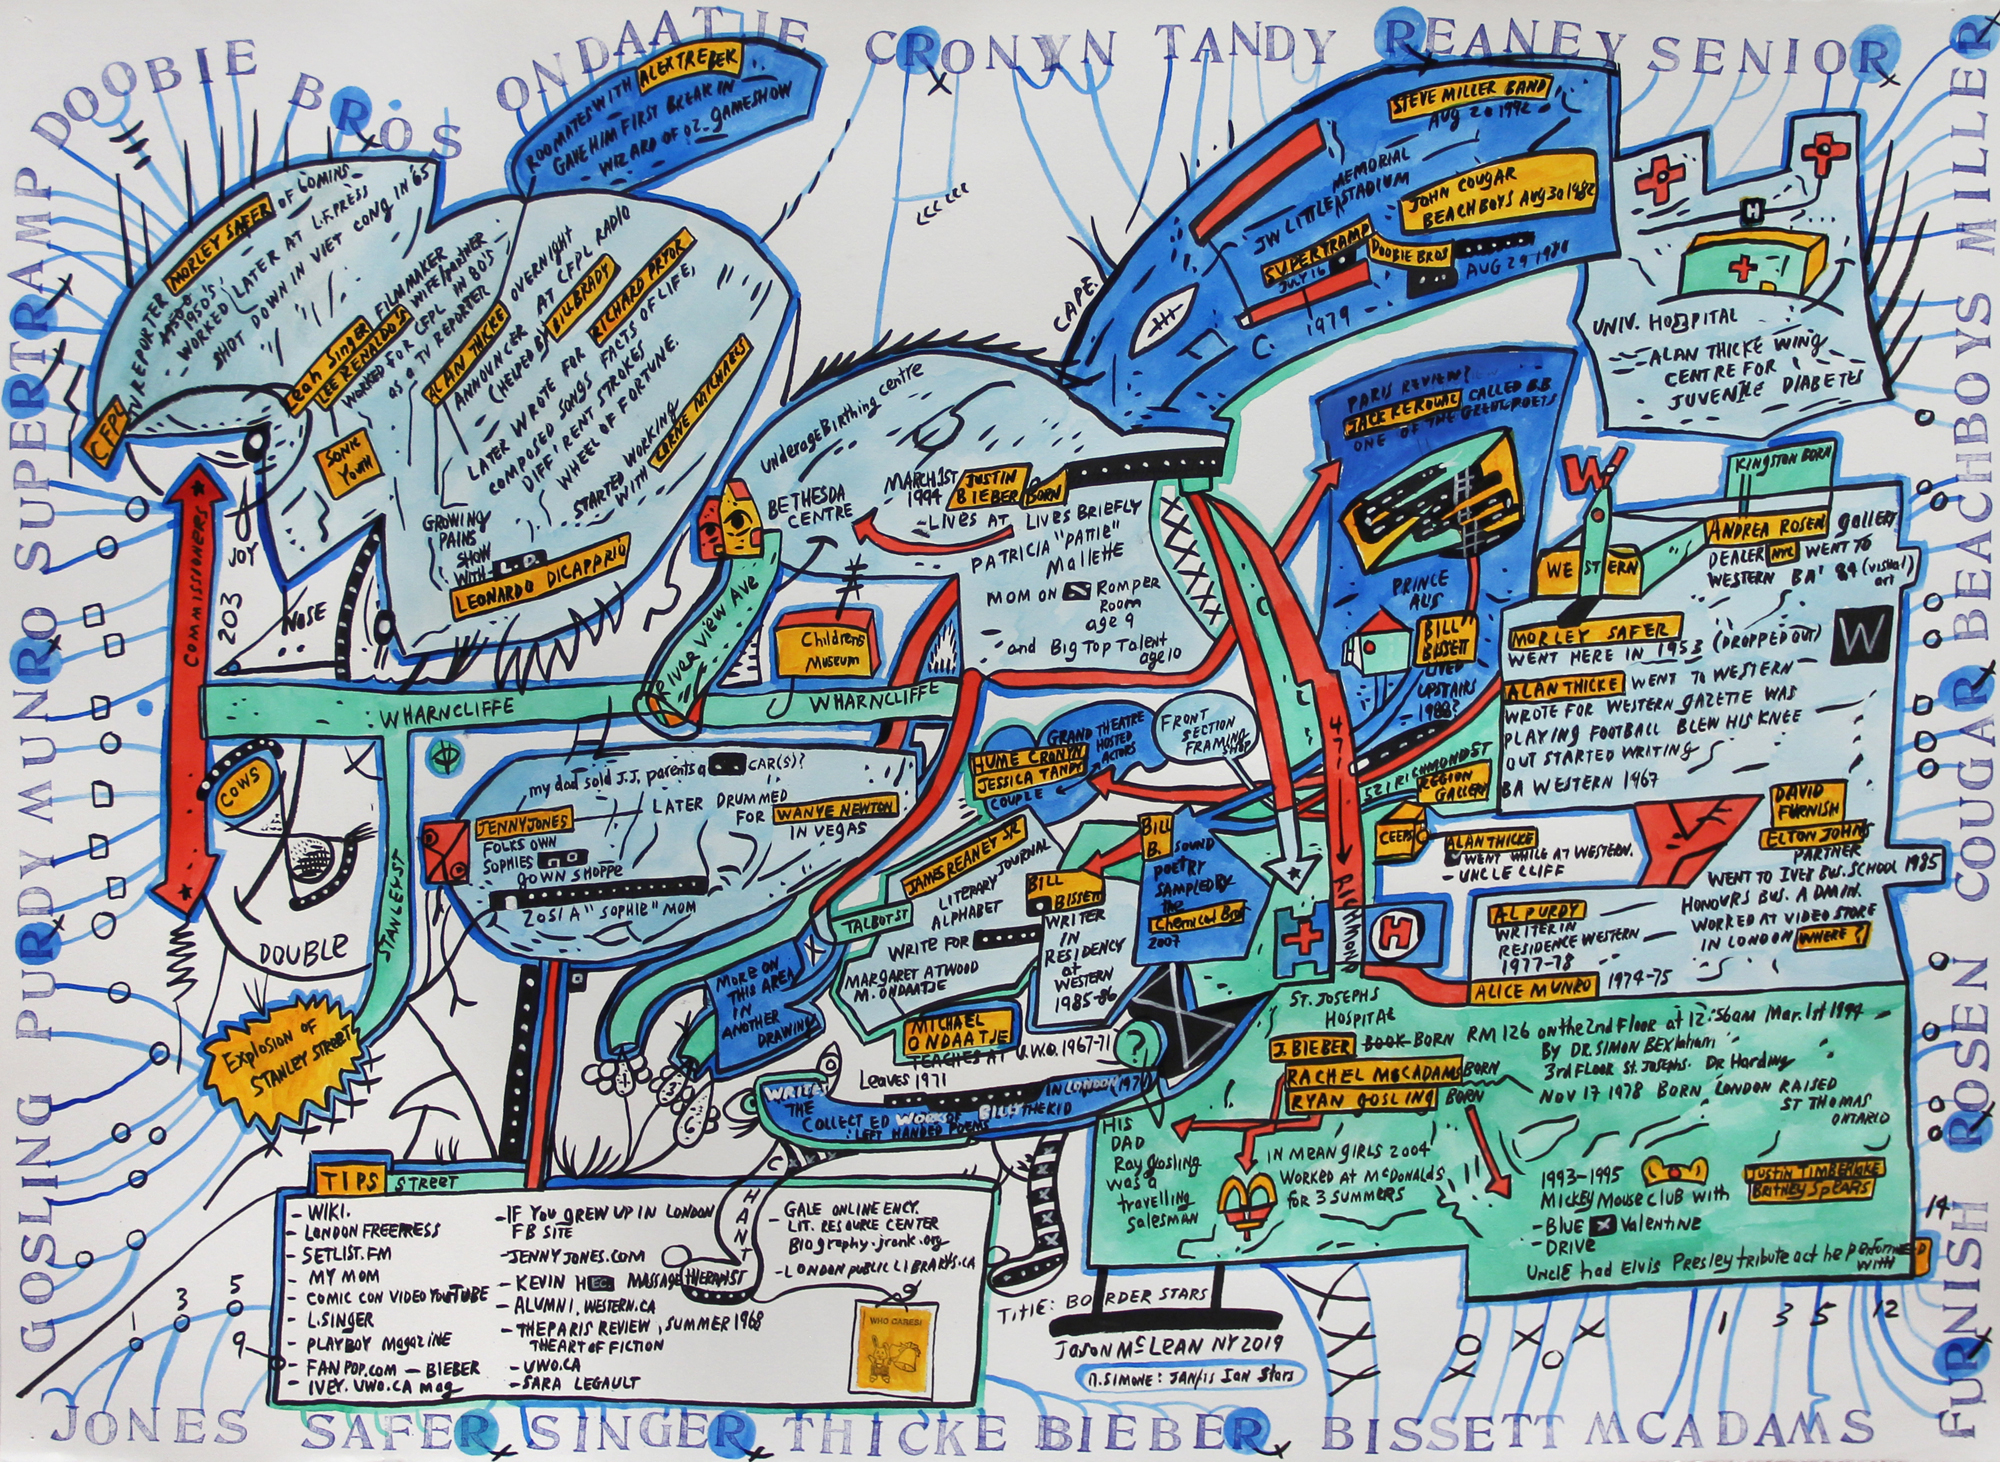 DOOBIE BROS ONDAATJE CRONYN TANDY REANEY SENIOR
MILLER BEACHBOYS COUGAR ROSEN FURNISH
GOSLING PURDY MUNRO SUPERTRAMP
JONES SAFER SINGER THICKE BIEBER BISSETT MCADAMS
ROOMATES WITH ALEX TREBEK
GAVE HIM FIRST BREAK IN
WIZARD OF OZ GAMESHOW
CFPL
TV REPORTER MORLEY SAFER OF 60MINS
1950'S
WORKED LATER AT L.F.PRESS
SHOT DOWN IN VIET CONG IN '65
Leah Singer FILMMAKER
LEE RENALDO'S WIFE/partner
WORKED FOR CFPL IN 80'S
as a TV REPORTER
SONIC YOUTH
ALAN THICKE OVERNIGHT
ANNOUNCER AT CFPL RADIO
(HELPED BY BILL BRADY
LATER WROTE FOR RICHARD PRYOR
COMPOSED SONGS FACTS OF LIFE,
DIFF'RENT STROKES
WHEEL OF FORTUNE.
STARTED WORKING
WITH LORNE MICHAELS
GROWING
PAINS
SHOW
WITH L.D.
LEONARDO DICAPPRIO
COMMISSIONERS
203 JOY
NOSE
WHARNCLIFFE
WHARNCLIFFE
RIVERVIEW AVE
Children's
Museum
underage Birthing centre
BETHESDA
CENTRE
MARCH 1ST
1994 JUSTIN
BIEBER BORN
LIVES AT LIVES BRIEFLY
PATRICIA "PATTIE"
Mallette
MOM ON Romper
Room
age 9
and Big Top Talent
age 10
CAPE.
STEVE MILLER BAND
AUG 20 1992
MEMORIAL
JW LITTLE STADIUM
JOHN COUGAR
BEACH BOYS AUG 30 1982
SUPERTRAMP
JULY 16
DOOBIE BROS
C. 1979
UNIV. HOSPITAL
ALAN THICKE WING
CENTRE FOR
JUVENILE DIABETES
H
PARIS REVIEW
JACK KEROUAC CALLED B.B
ONE OF THE GREAT POETS
PRINCE
AL'S
BILL
BISSETT
LIVED
UPSTAIRS
1988?
KINGSTON BORN
W
WESTERN
ANDREA ROSEN gallery
DEALER NYC WENT TO
WESTERN BA' 84 (visual art)
MORLEY SAFER
WENT HERE IN 1953 (DROPPED OUT)
W
ALAN THICKE WENT TO WESTERN
WROTE FOR WESTERN GAZETTE WAS
PLAYING FOOTBALL BLEW HIS KNEE
OUT STARTED WRITING
BA WESTERN 1967
521 RICHMOND ST
REGION
GALLERY
471
RICHMOND
CEEPS
ALAN THICKE
WENT WHILE AT WESTERN.
- UNCLE CLIFF
DAVID
FURNISH
ELTON JOHNS
PARTNER
WENT TO IVEY BUS. SCHOOL 1985
HONOURS BUS. ADMIN.
WORKED AT VIDEO STORE
IN LONDON WHERE?
AL PURDY
WRITER IN
RESIDENCE WESTERN
1977-78
ALICE MUNRO 1974-75
GRAND THEATRE
HOSTED
ACTORS
HUME CRONYN
JESSICA TANDY
COUPLE
FRONT
SECTION
FRAMING
SHOP
COWS
DOUBLE
STANLEY ST
Explosion of
STANLEY STREET
my dad sold J.J. parents a CAR(S)?
JENNY JONES
FOLKS OWN
SOPHIES
gown SHOPPE
LATER DRUMMED
FOR WANYE NEWTON
IN VEGAS
ZOSIA "SOPHIE" MOM
MORE ON
THIS AREA
IN
ANOTHER
DRAWING
JAMES REANEY SR
LITERARY JOURNAL
ALPHABET
TALBOT ST
WRITE FOR
MARGARET ATWOOD
M. ONDAATJE
BILL
BISSETT
WRITER
IN
RESIDENCY
at
WESTERN
1985-86
BILL
B. SOUND
POETRY
SAMPLED BY
the
Chemical Bros
2007
MICHAEL
ONDAATJE
TEACHES AT U.W.O. 1967-71
Leaves 1971
?
WRITES IN LONDON 1971
THE
COLLECTED WORKS OF BILLY THE KID
: LEFT HANDED POEMS
H
ST. JOSEPHS
HOSPITAL
J. BIEBER BORN RM 126 on the 2nd FLOOR at 12:56am Mar. 1st 1994
By DR. SIMON
3rd FLOOR St. Josephs. DR Harding
RACHEL MCADAMS BORN
NOV 17 1978 BORN LONDON RAISED
ST THOMAS
ONTARIO
RYAN GOSLING BORN
HIS
DAD
Ray gosling
was a
travelling
salesman
IN MEAN GIRLS 2004
WORKED AT McDONALDS
FOR 3 SUMMERS
1993-1995
MICKEY MOUSE CLUB WITH
JUSTIN TIMBERLAKE
BRITNEY SPEARS
- BLUE Valentine
- DRIVE
UNCLE had ELVIS Presley tribute act he performed
WITH
TIPS STREET
- WIKI.
- LONDON FREEPRESS
- SETLIST.FM
- MY MOM
- COMIC CON VIDEO YOUTUBE
- L.SINGER
- PLAYBOY Magazine
- FANPOP.COM - BIEBER
- IVEY.UWO.CA mag
- IF YOU GREW UP IN LONDON
FB SITE
- JENNYJONES.COM
- KEVIN HEC MASSAGE THERAPIST
- ALUMNI.WESTERN.CA
- THE PARIS REVIEW, SUMMER 1968
THE ART OF FICTION
- UWO.CA
- SARA LEGAULT
CHANT
- GALE ONLINE ENCY.
LIT. RESOURCE CENTER
Biography.jrank.org
- LONDON PUBLIC LIBRARYS.CA
WHO CARES!
TITLE: BOARDER STARS
JASON McLEAN NY 2019
1 3 5 9
1 3 5 12
14